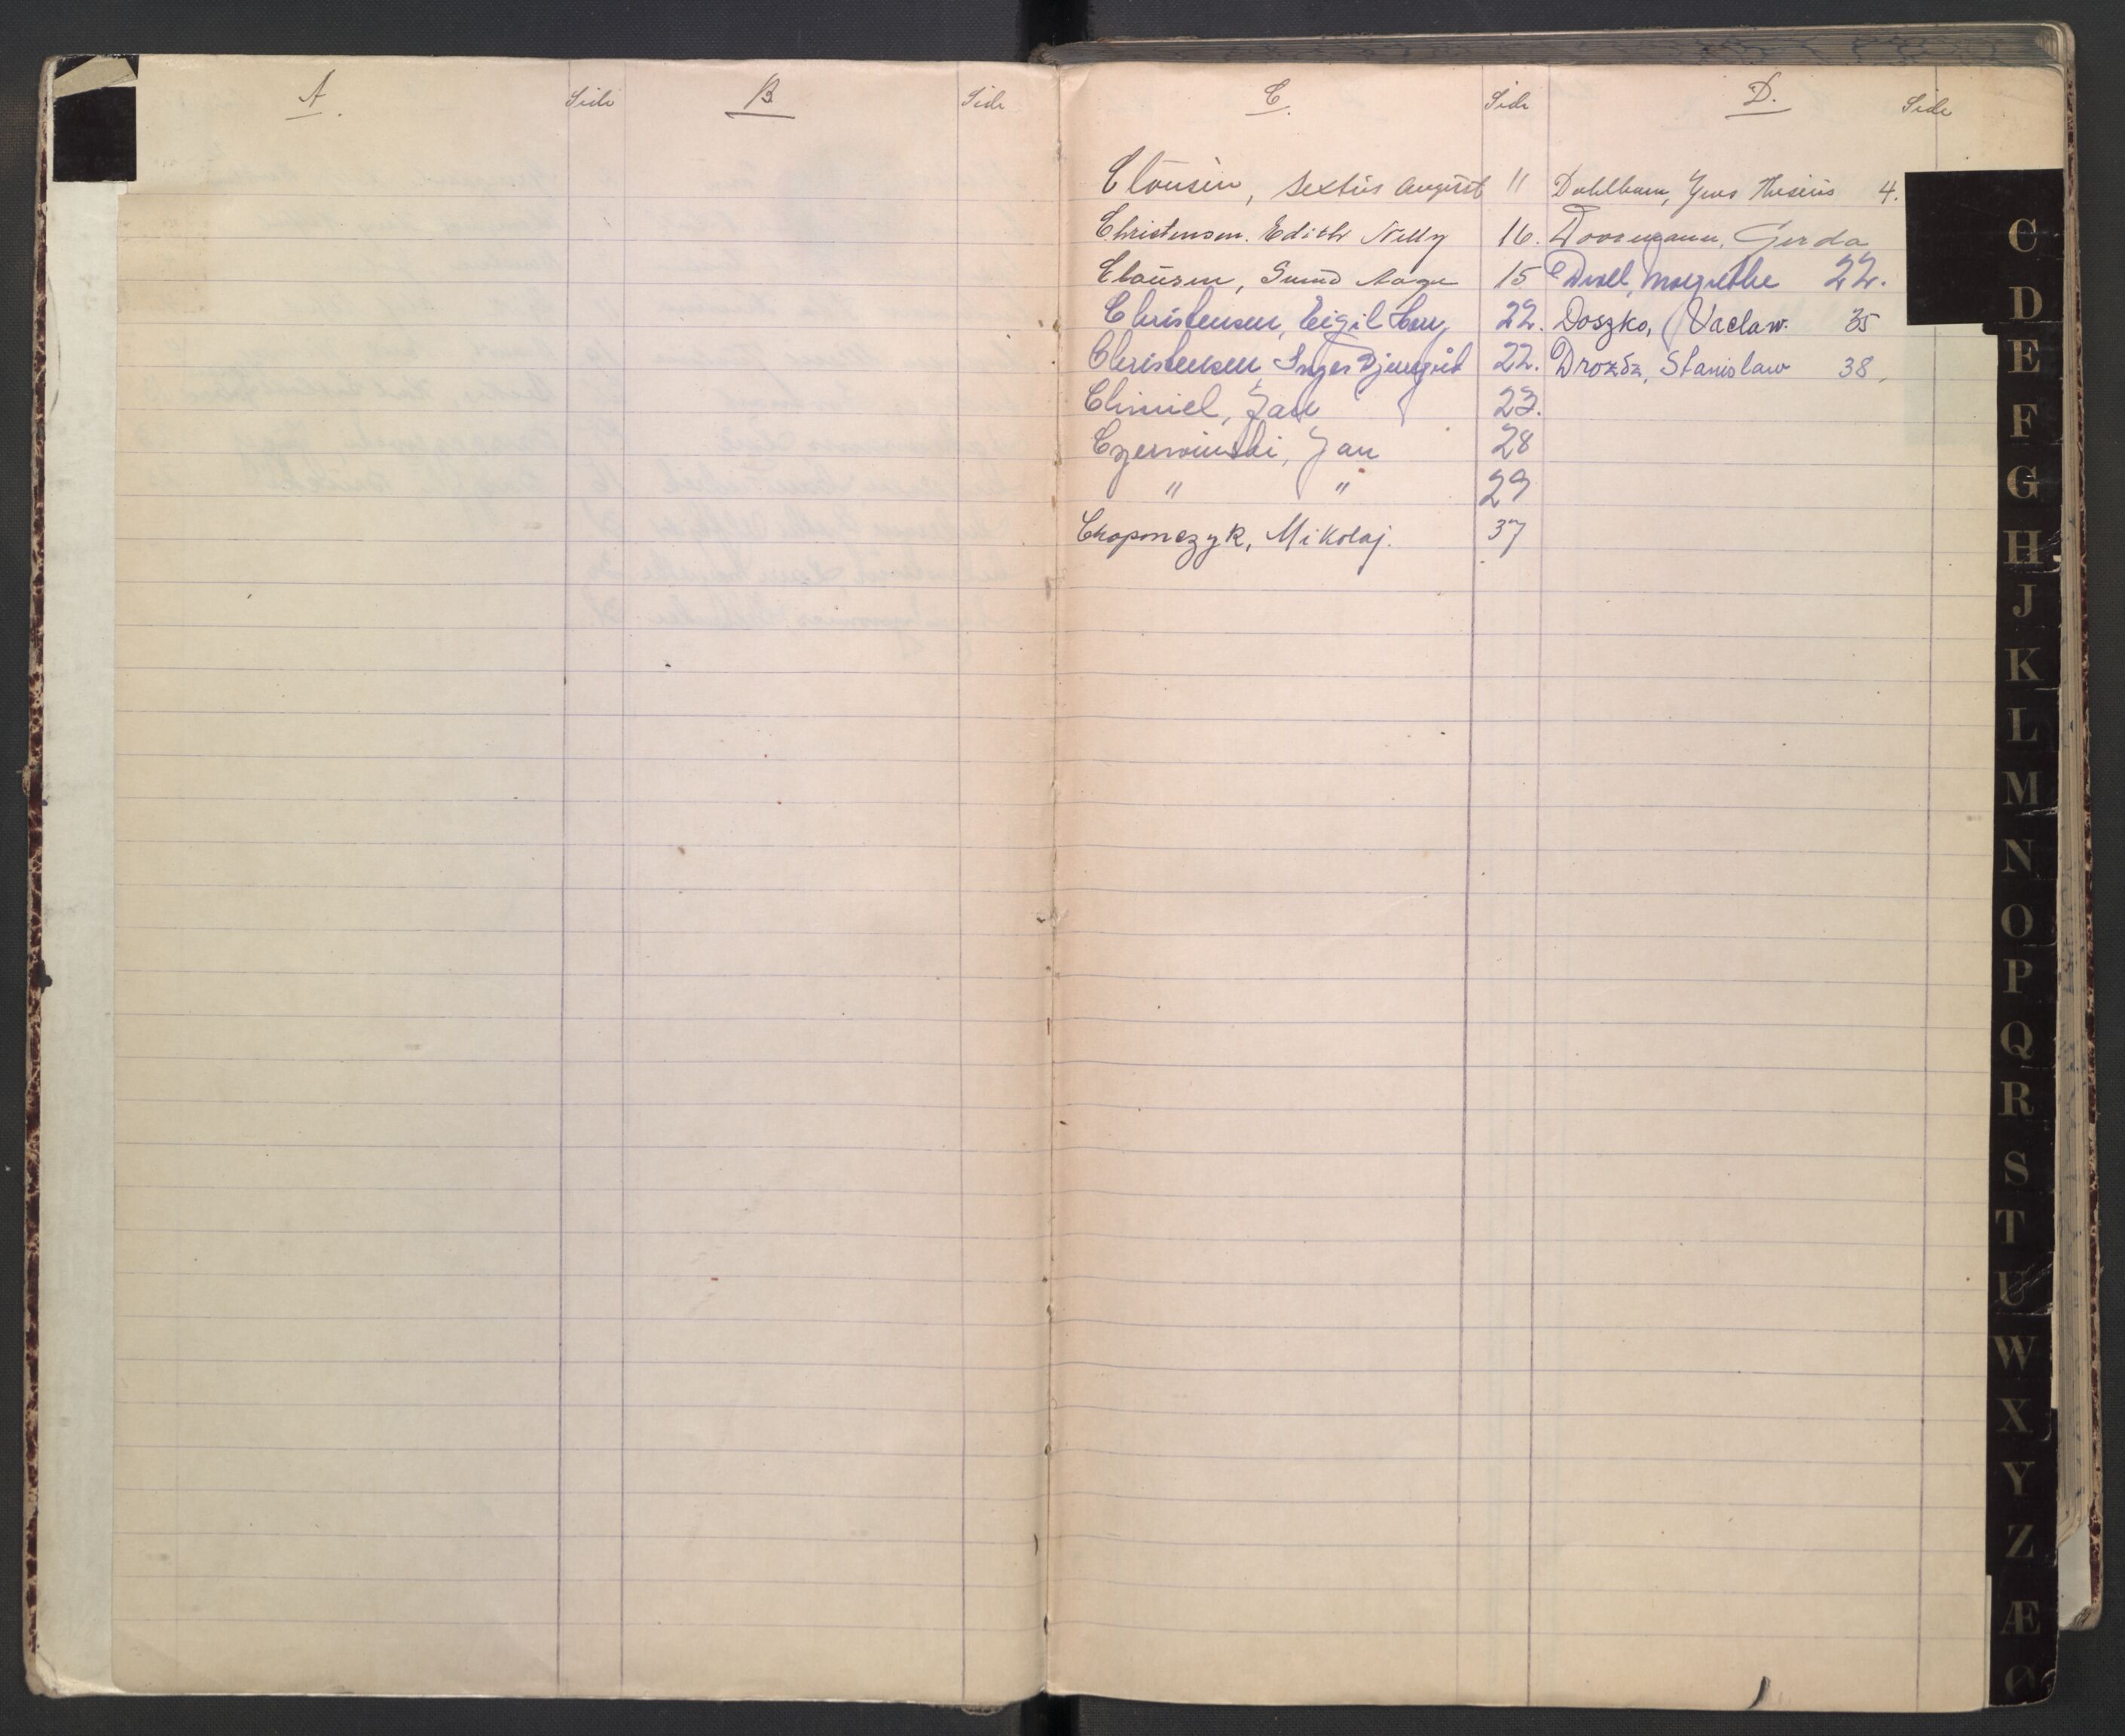 A. Side B. Side
C. Side
Clausen, Sextus August 11
Christensen. Edith Nelly 16.
Clausen, Svend Aage 15
Christensen, Eigil 22.
Christensen Inger 22.
Chmiel, Jan 23.
Czerwinski, Jan 28
" " 29
Chaponczyk, Mikolaj. 37
D. Side
Dahlham, Jens 4.
Doosemann, Gerda
Margrethe 22.
Doszko, Vaclaw. 35
Drozdz, Stanislaw 38.
C
D
E
F
G
H
J
K
L
M
N
O
P
Q
R
S
T
U
W
X
Y
Z
Æ
Ø